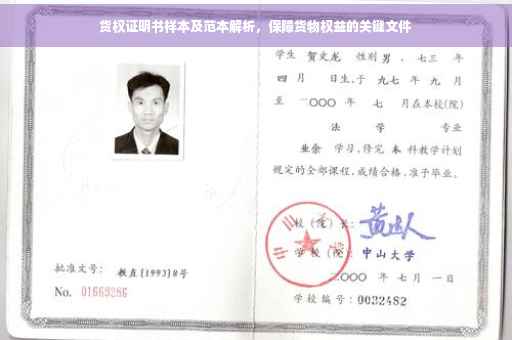 货权证明书样本及范本解析，保障货物权益的关键文件
学生 贺文龙 性别 男，七三 年
四 月 日生，于 九七 年 九 月
至 二〇〇〇 年 七 月在本校(院)
法 学 专业
业余 学习，修完 本 科教学计划
规定的全部课程，成绩合格，准予毕业。
校 (院) 长：
学 校 (院)： 中山大学
二〇〇〇 年 七 月 一 日
学校编号：0032482
批准文号： 教直[1993]8号
No. 01669286